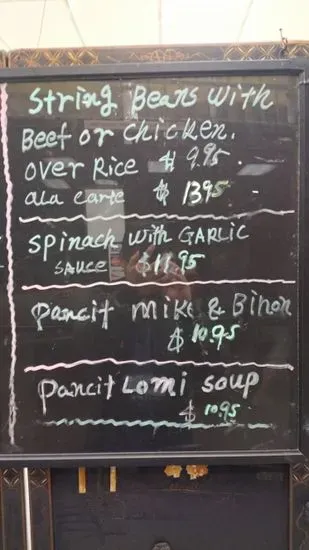 String Beans with
Beef or chicken.
over Rice $ 9.95
ala carte $ 13.95
Spinach with GARLIC
SAUCE $11.95
Pancit mike & Bihon
$ 10.95
Pancit Lomi soup
$ 10.95